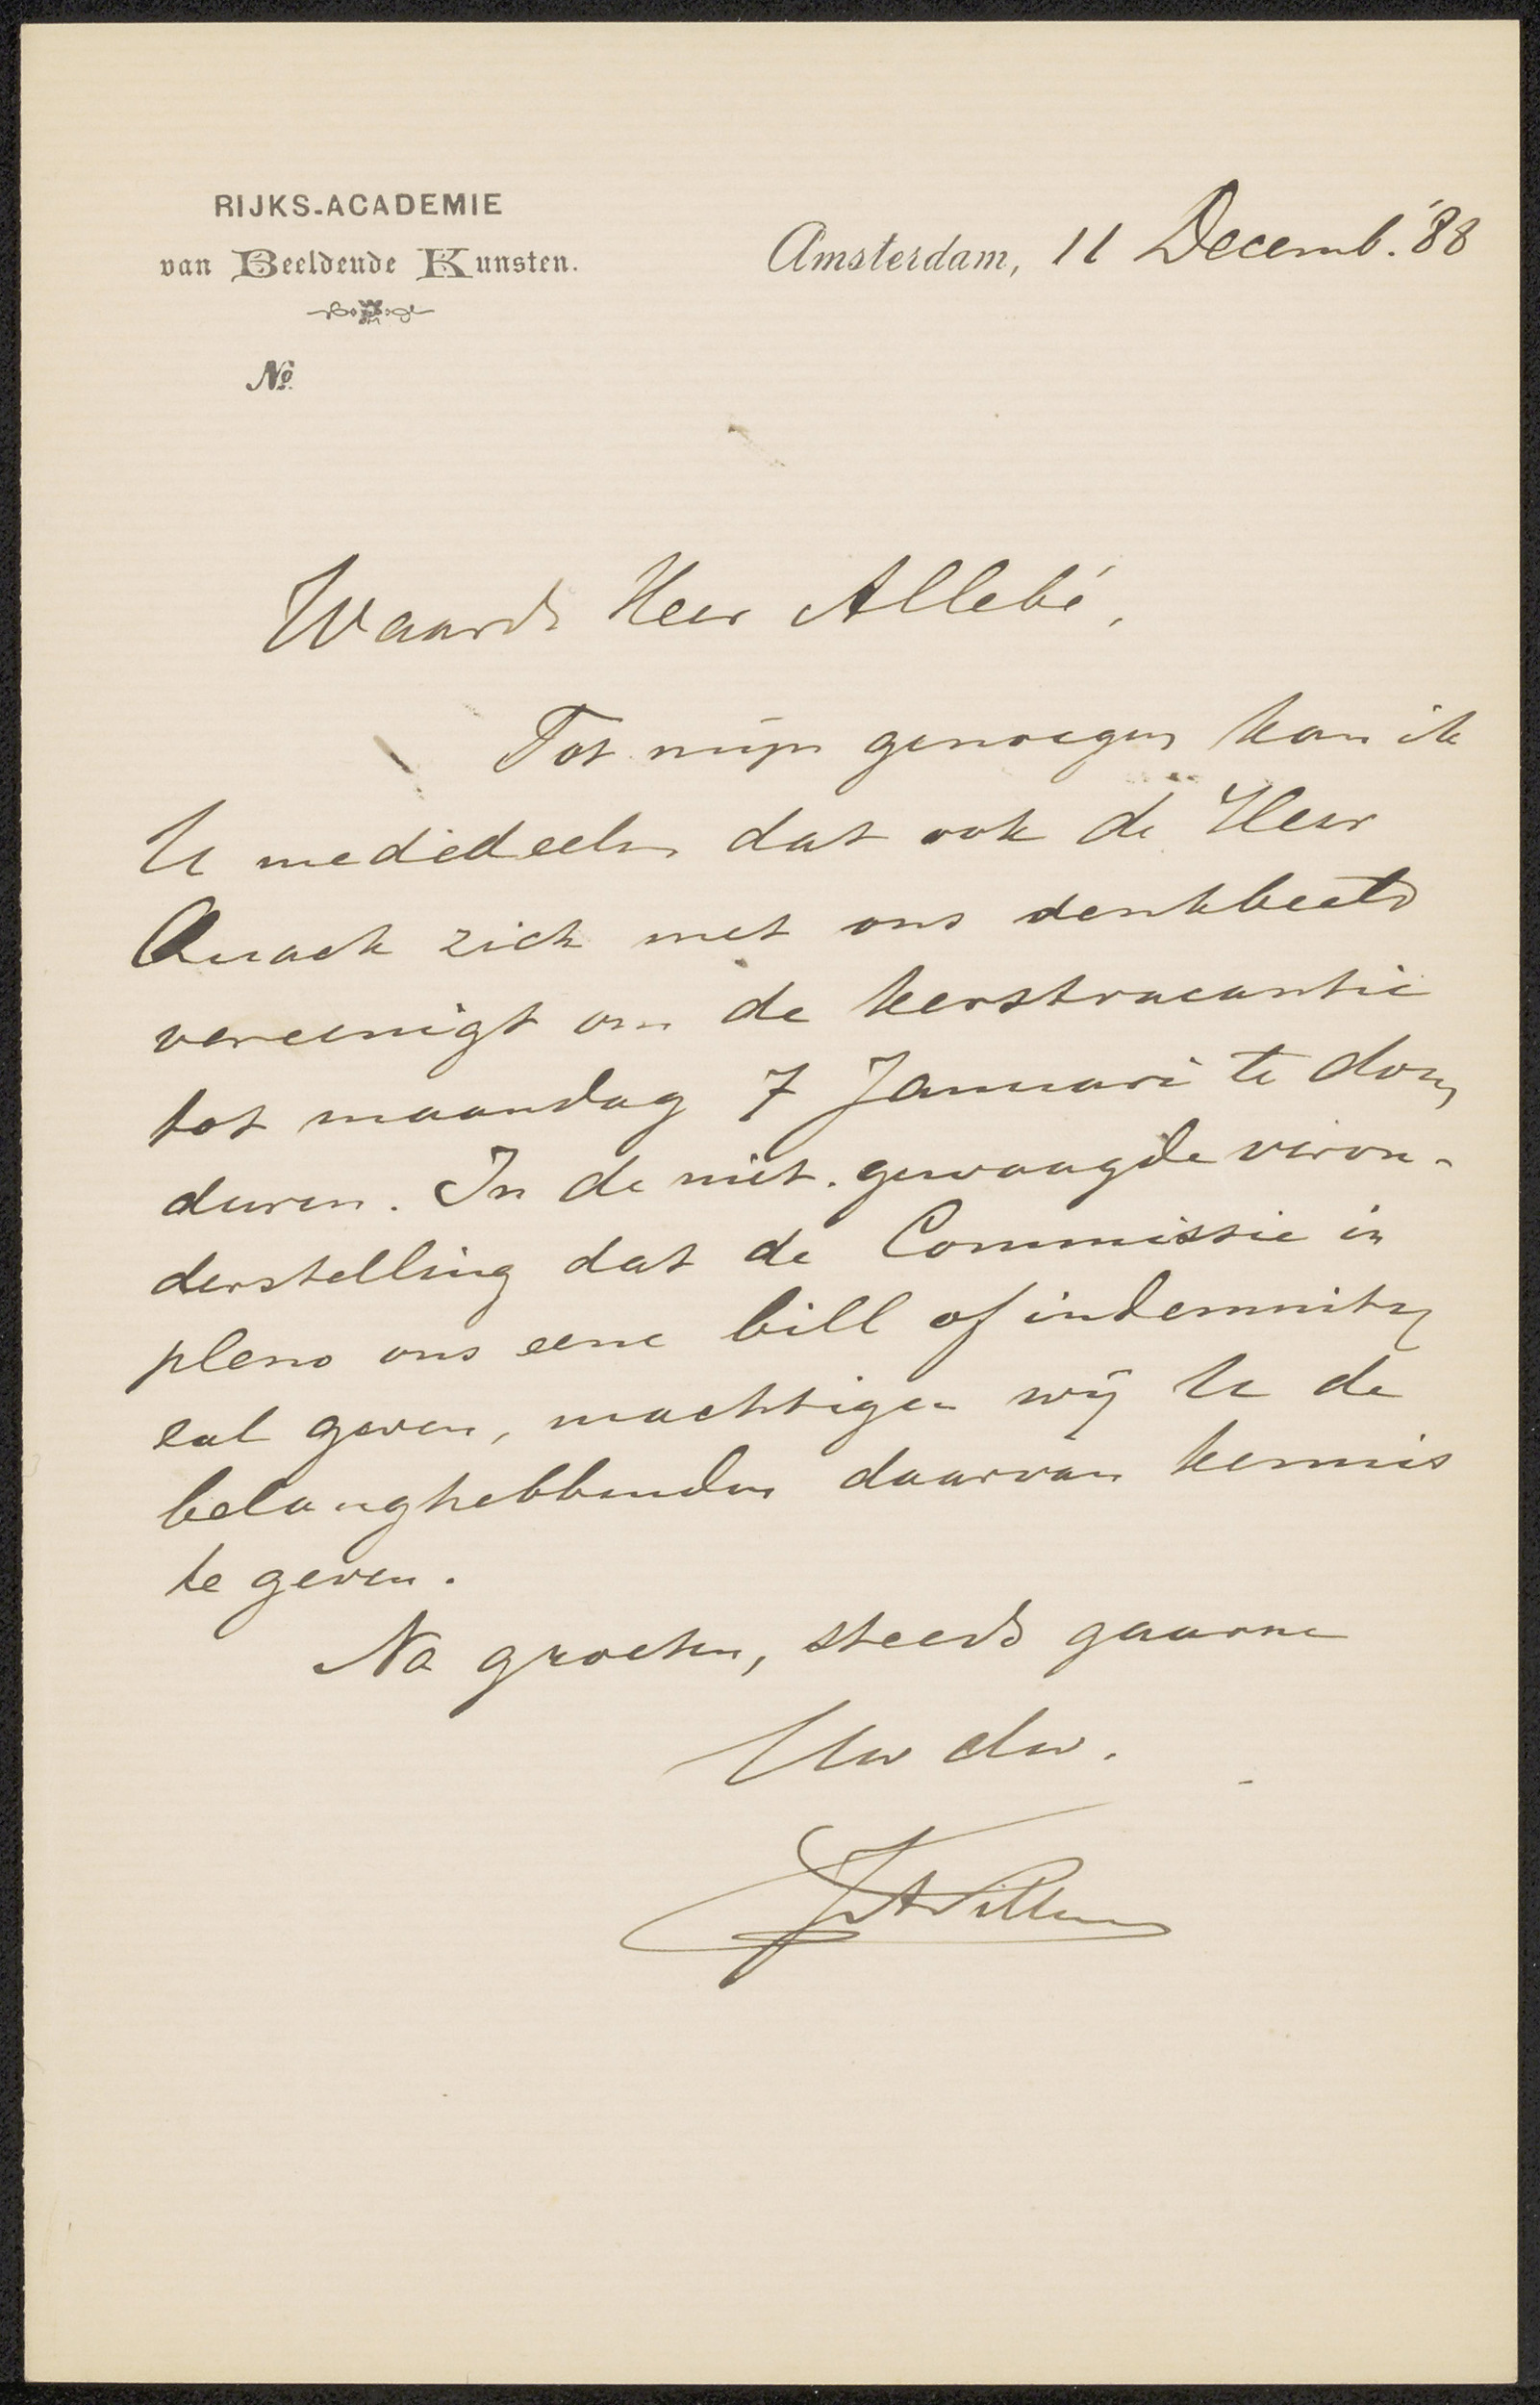 RIJKS-ACADEMIE
van Beeldende Kunsten.
Amsterdam, 11 Decemb. '88
No.
Waarde Heer Allebé,
Tot mijn genoegen kan ik
U mededeelen dat ook de Heer
Quack zich met ons denkbeeld
vereenigt om de kerstvacantie
tot maandag 7 Januari te doen
duren. In de niet-gewaagde veron-
derstelling dat de Commissie in
pleno ons eene bill of indemnity
zal geven, machtigen wij U de
belanghebbenden daarvan kennis
te geven.
Na groeten, steeds gaarne
Uw dw.